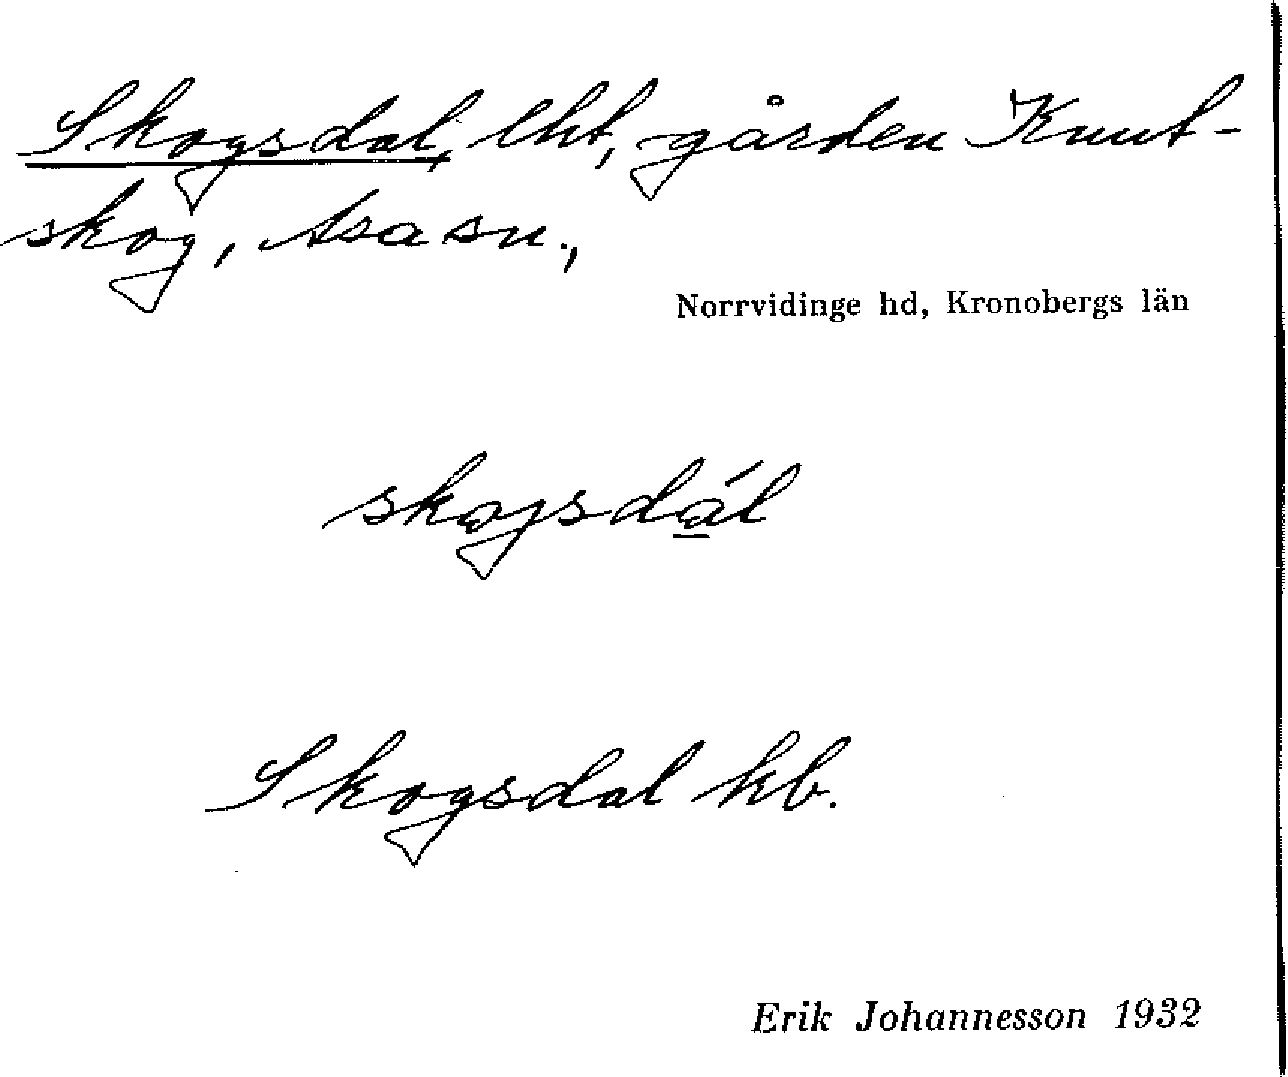 Skogsdal, lht, gården Knut-
skog, Asa sn.,
Norrvidinge hd, Kronobergs län
skogsdál
Skogsdal kb.
Erik Johannesson 1932